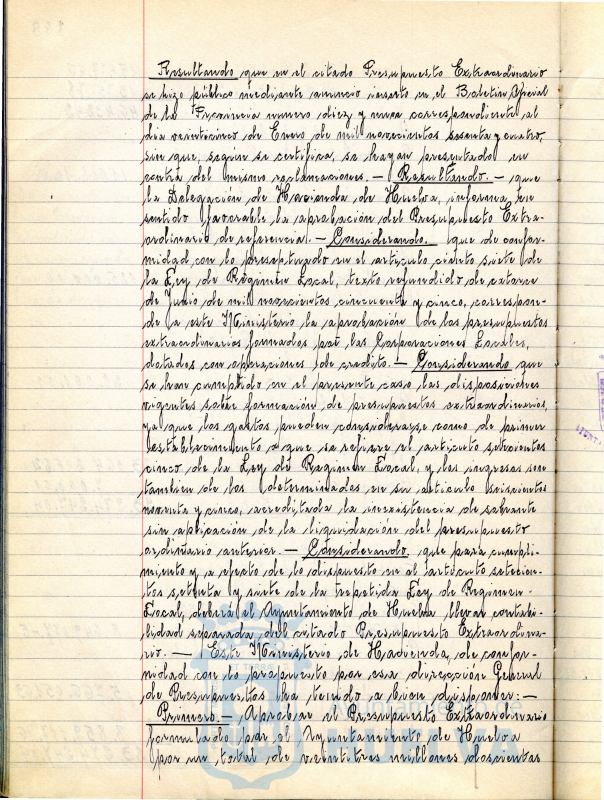 Resultando que en el citado Presupuesto Extraordinario
se hizo público mediante anuncio inserto en el Boletín Oficial
de la Provincia numero diez y nueve correspondiente al
dia veinticinco de Enero de mil novecientos sesenta y cuatro,
sin que, según se certifica, se hayan presentado en
contra del mismo reclamaciones. — Resultando. — que
la Delegación de Hacienda de Huelva, informa, en
sentido favorable la aprobación del Presupuesto Extra-
ordinario de referencia. — Considerando. que de confor-
midad con lo preceptuado en el articulo ciento siete de
la Ley de Regimen Local, texto refundido de catorce
de Junio de mil novecientos cincuenta y cinco, correspon-
de a este Ministerio la aprobación de los presupuestos
extraordinarios formados por las Corporaciones Locales,
dotados con operaciones de credito. — Considerando que
se han cumplido en el presente caso las disposiciones
vigentes sobre formación de presupuestos extraordinarios,
ya que los gastos pueden considerarse como de primer
establecimiento a que se refiere el articulo setecientos
cinco de la Ley de Regimen Local, y los ingresos son
tambien de los determinados en su articulo seiscientos
noventa y cinco, acreditada la inexistencia de sobrante
sin aplicación de la liquidación del presupuesto
ordinario anterior. — Considerando, que para cumpli-
miento y a efecto de lo dispuesto en el articulo setecien-
tos setenta y siete de la repetida Ley de Regimen
Local, deberá el Ayuntamiento de Huelva llevar contabi-
lidad separada del citado Presupuesto Extraordina-
rio. — Este Ministerio de Hacienda, de confor-
midad con lo propuesto por esa dirección General
de Presupuestos ha tenido a bien disponer: —
Primero. — Aprobar el Presupuesto Extraordinario
formulado por el Ayuntamiento de Huelva
por un total de veintitres millones doscientas
Ayuntamiento de
HUELVA